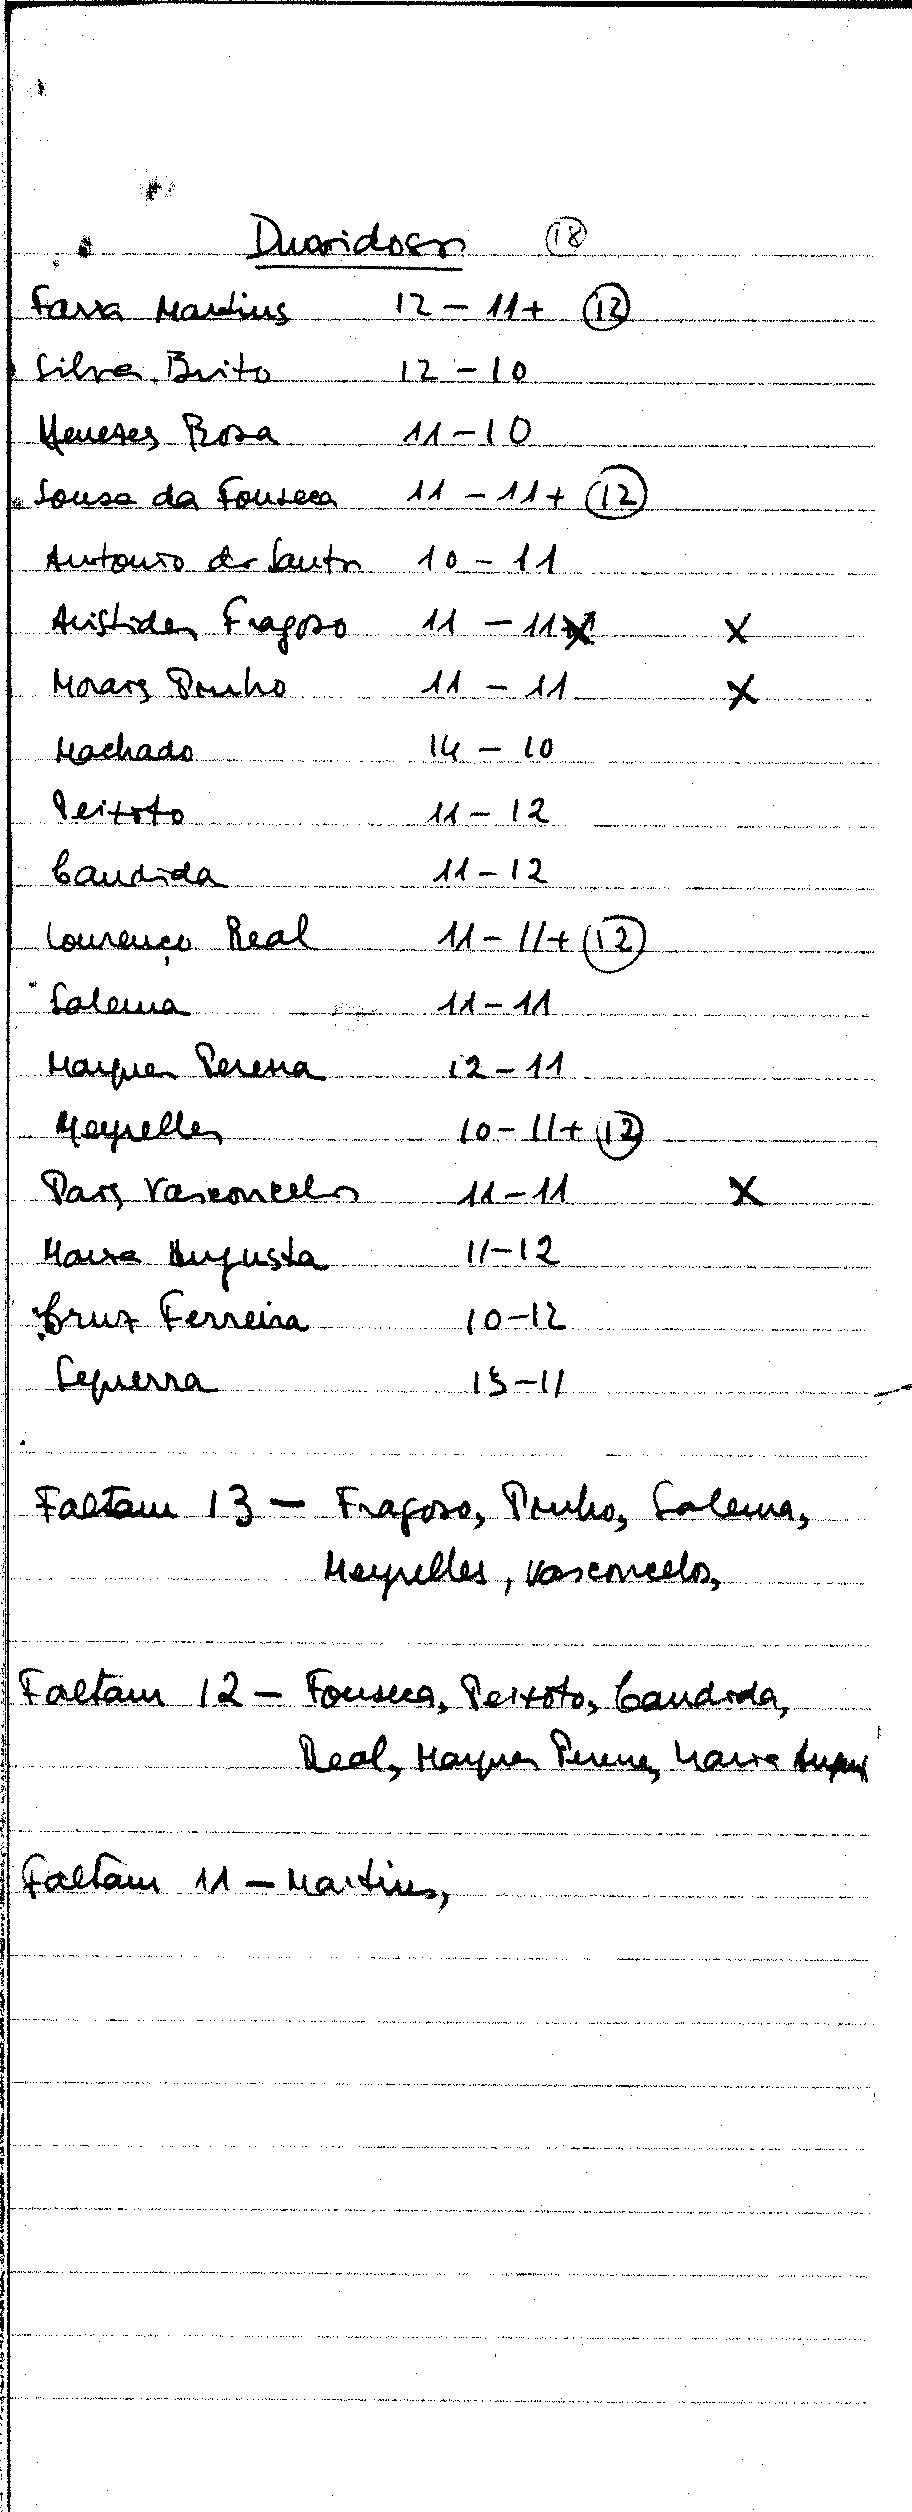 Duvidosos 18
Faria Martins 12 - 11+ 12
Silva Brito 12 - 10
Meneses Rosa 11 - 10
Sousa da Fonseca 11 - 11+ 12
Antonio dos Santos 10 - 11
Aristides Fragoso 11 - 11 X
Morais Pinho 11 - 11 X
Machado 14 - 10
Peixoto 11 - 12
Candida 11 - 12
Lourenço Real 11 - 11+ 12
Salema 11 - 11
Marques Pereira 12 - 11
Meyrelles 10 - 11+ 12
Pais Vasconcelos 11 - 11 X
Maria Augusta 11 - 12
Cruz Ferreira 10 - 12
Sequerra 13 - 11
Faltam 13 - Fragoso, Pinho, Salema,
Meyrelles, Vasconcelos,
Faltam 12 - Fonseca, Peixoto, Candida,
Real, Marques Pereira, Maria
Faltam 11 - Martins,